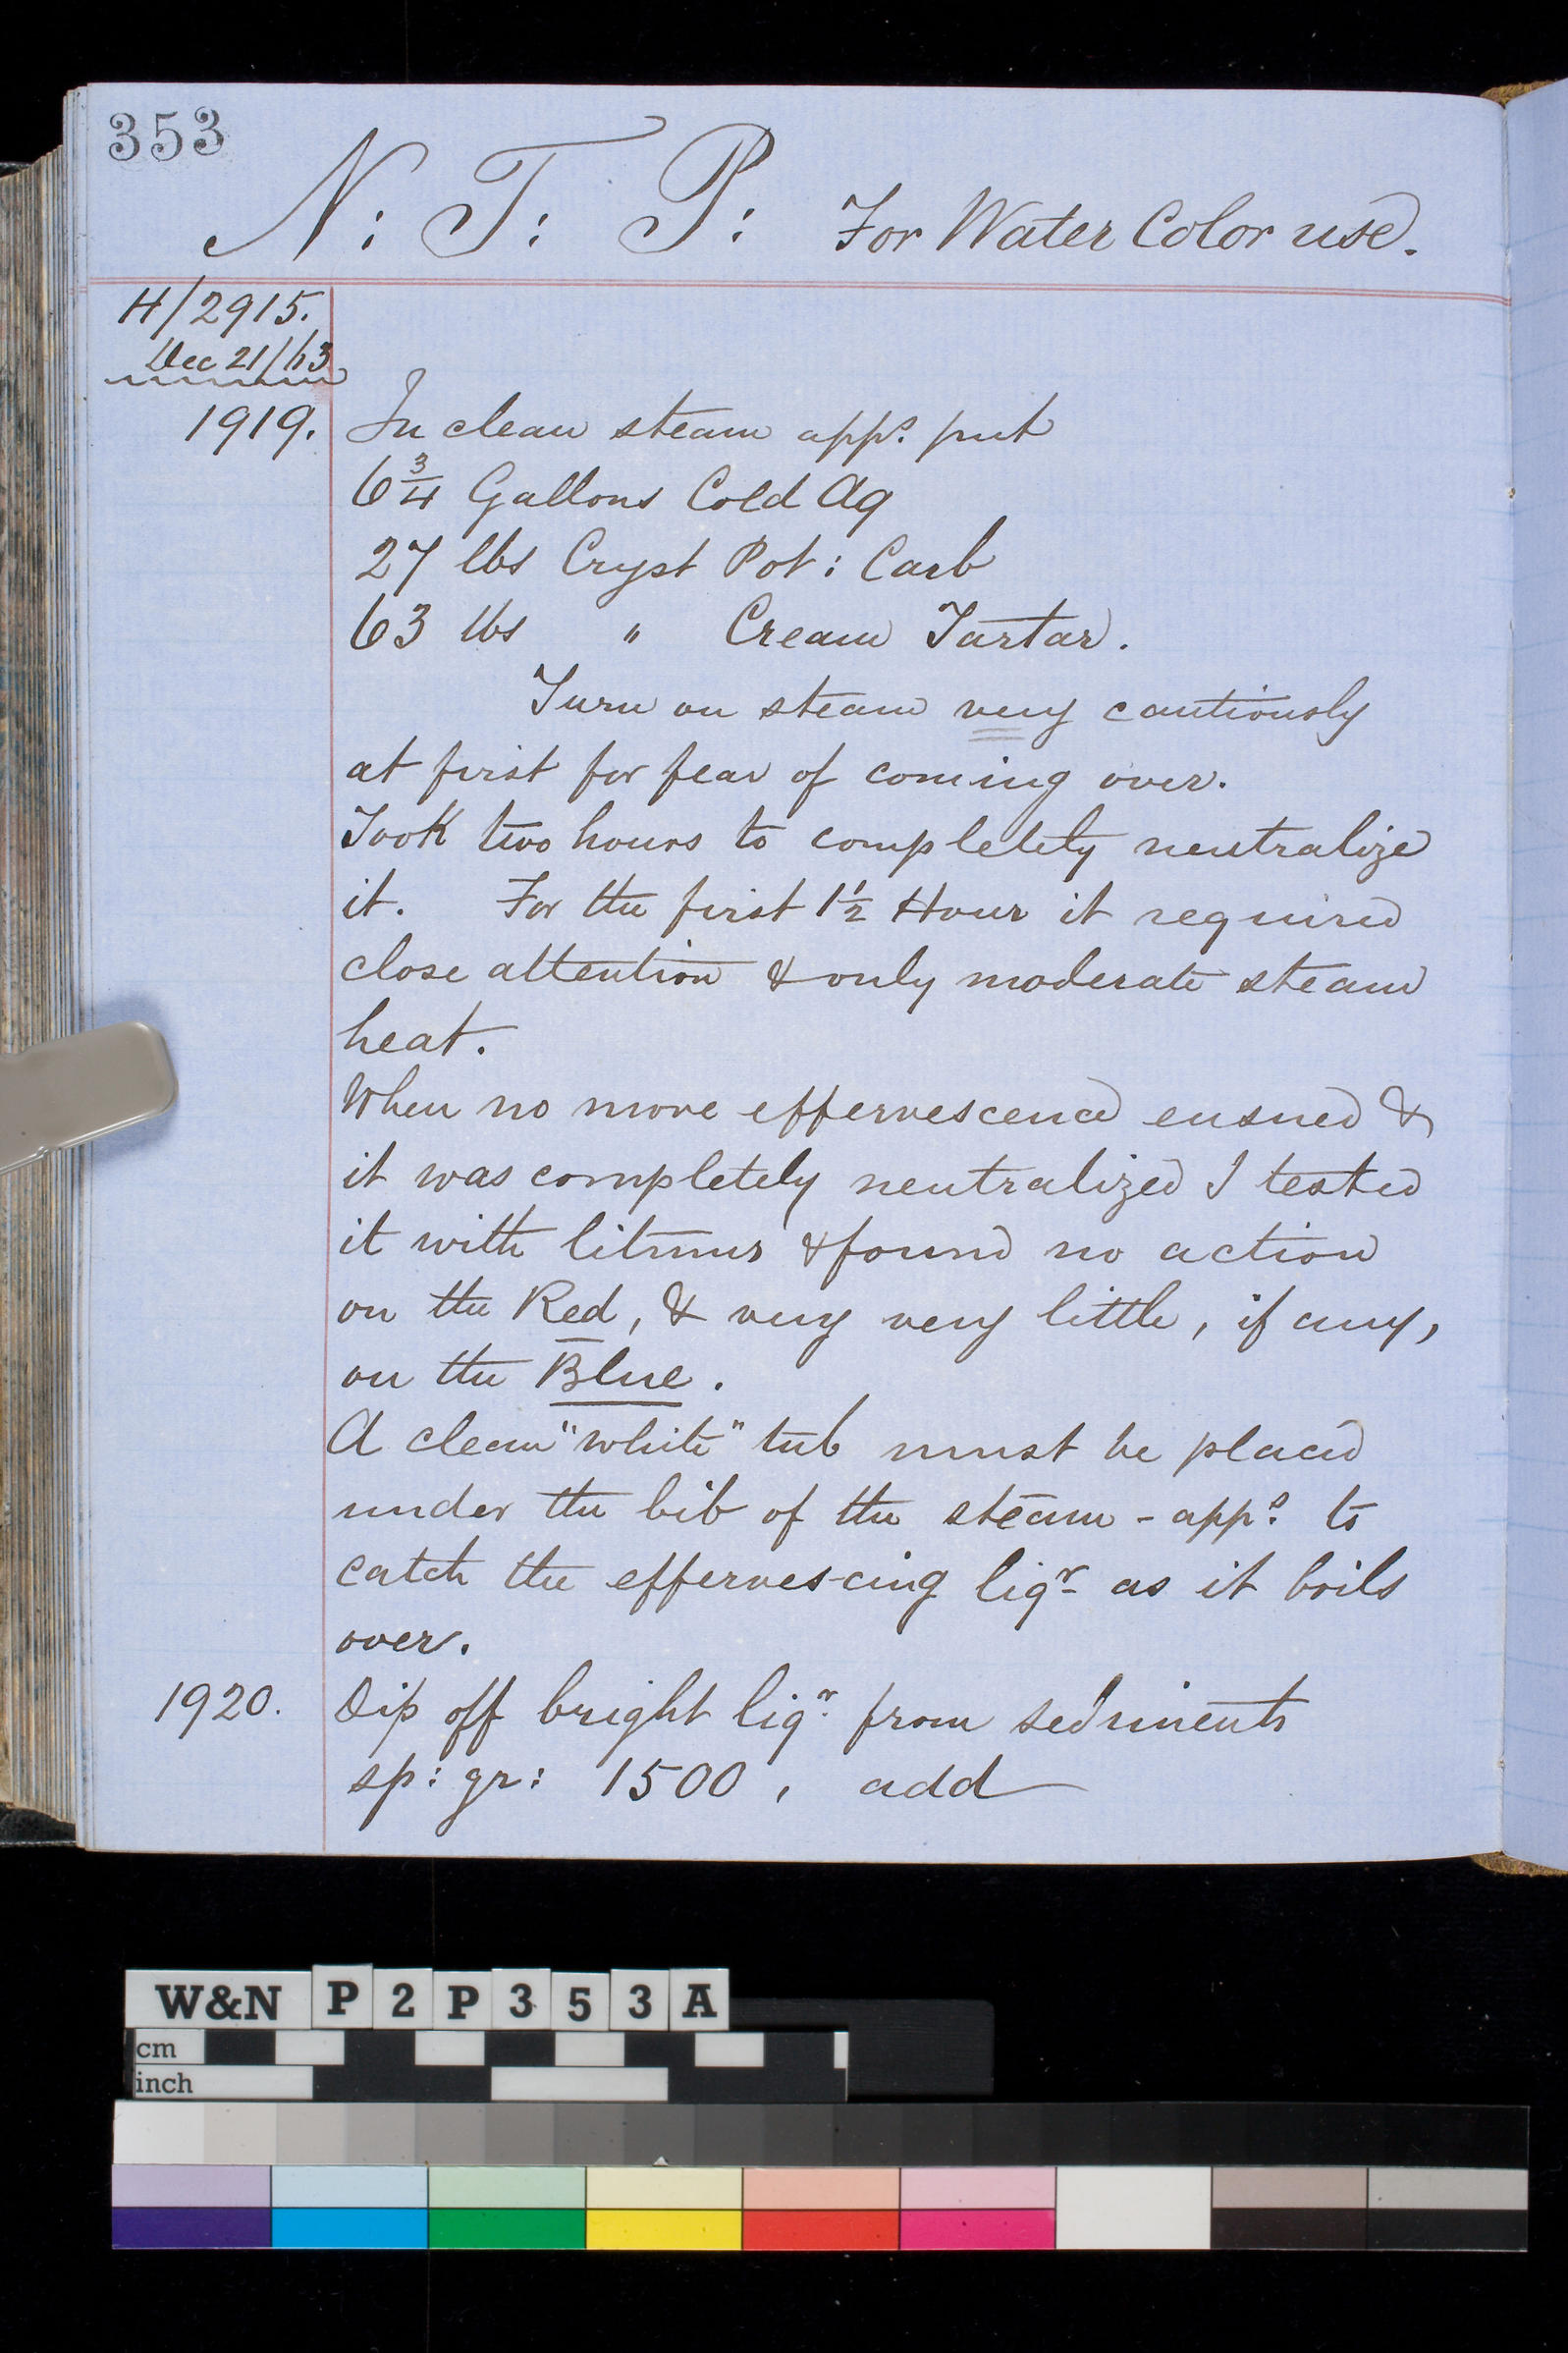 353
N: T: P: For Water Color use.
H/2915.
Dec 21/63
1919. In clean steam appˢ. put
6 3/4 Gallons Cold Aq
27 lbs Cryst Pot: Carb
63 lbs " Cream Tartar.
Turn on steam very cautiously
at first for fear of coming over.
Took two hours to completely neutralize
it. For the first 1 1/2 Hour it required
close attention & only moderate steam
heat.
When no more effervescence ensued &
it was completely neutralized I tested
it with litmus & found no action
on the Red, & very very little, if any,
on the Blue.
A clean "white" tub must be placed
under the bib of the steam-appˢ. to
catch the efferves-cing liqʳ as it boils
over.
1920. Dip off bright liqʳ. from sediments
sp: gr: 1500, add
W&N P2P353A
cm
inch